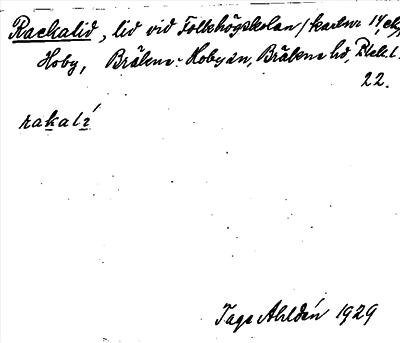 Rackalid, lid vid Folkhögskolan (kartnr 14, ek.
Hoby, Bräkne-Hoby sn, Bräkne hd, Blek. l.
22.
rakalí
Tage Ahldén 1929